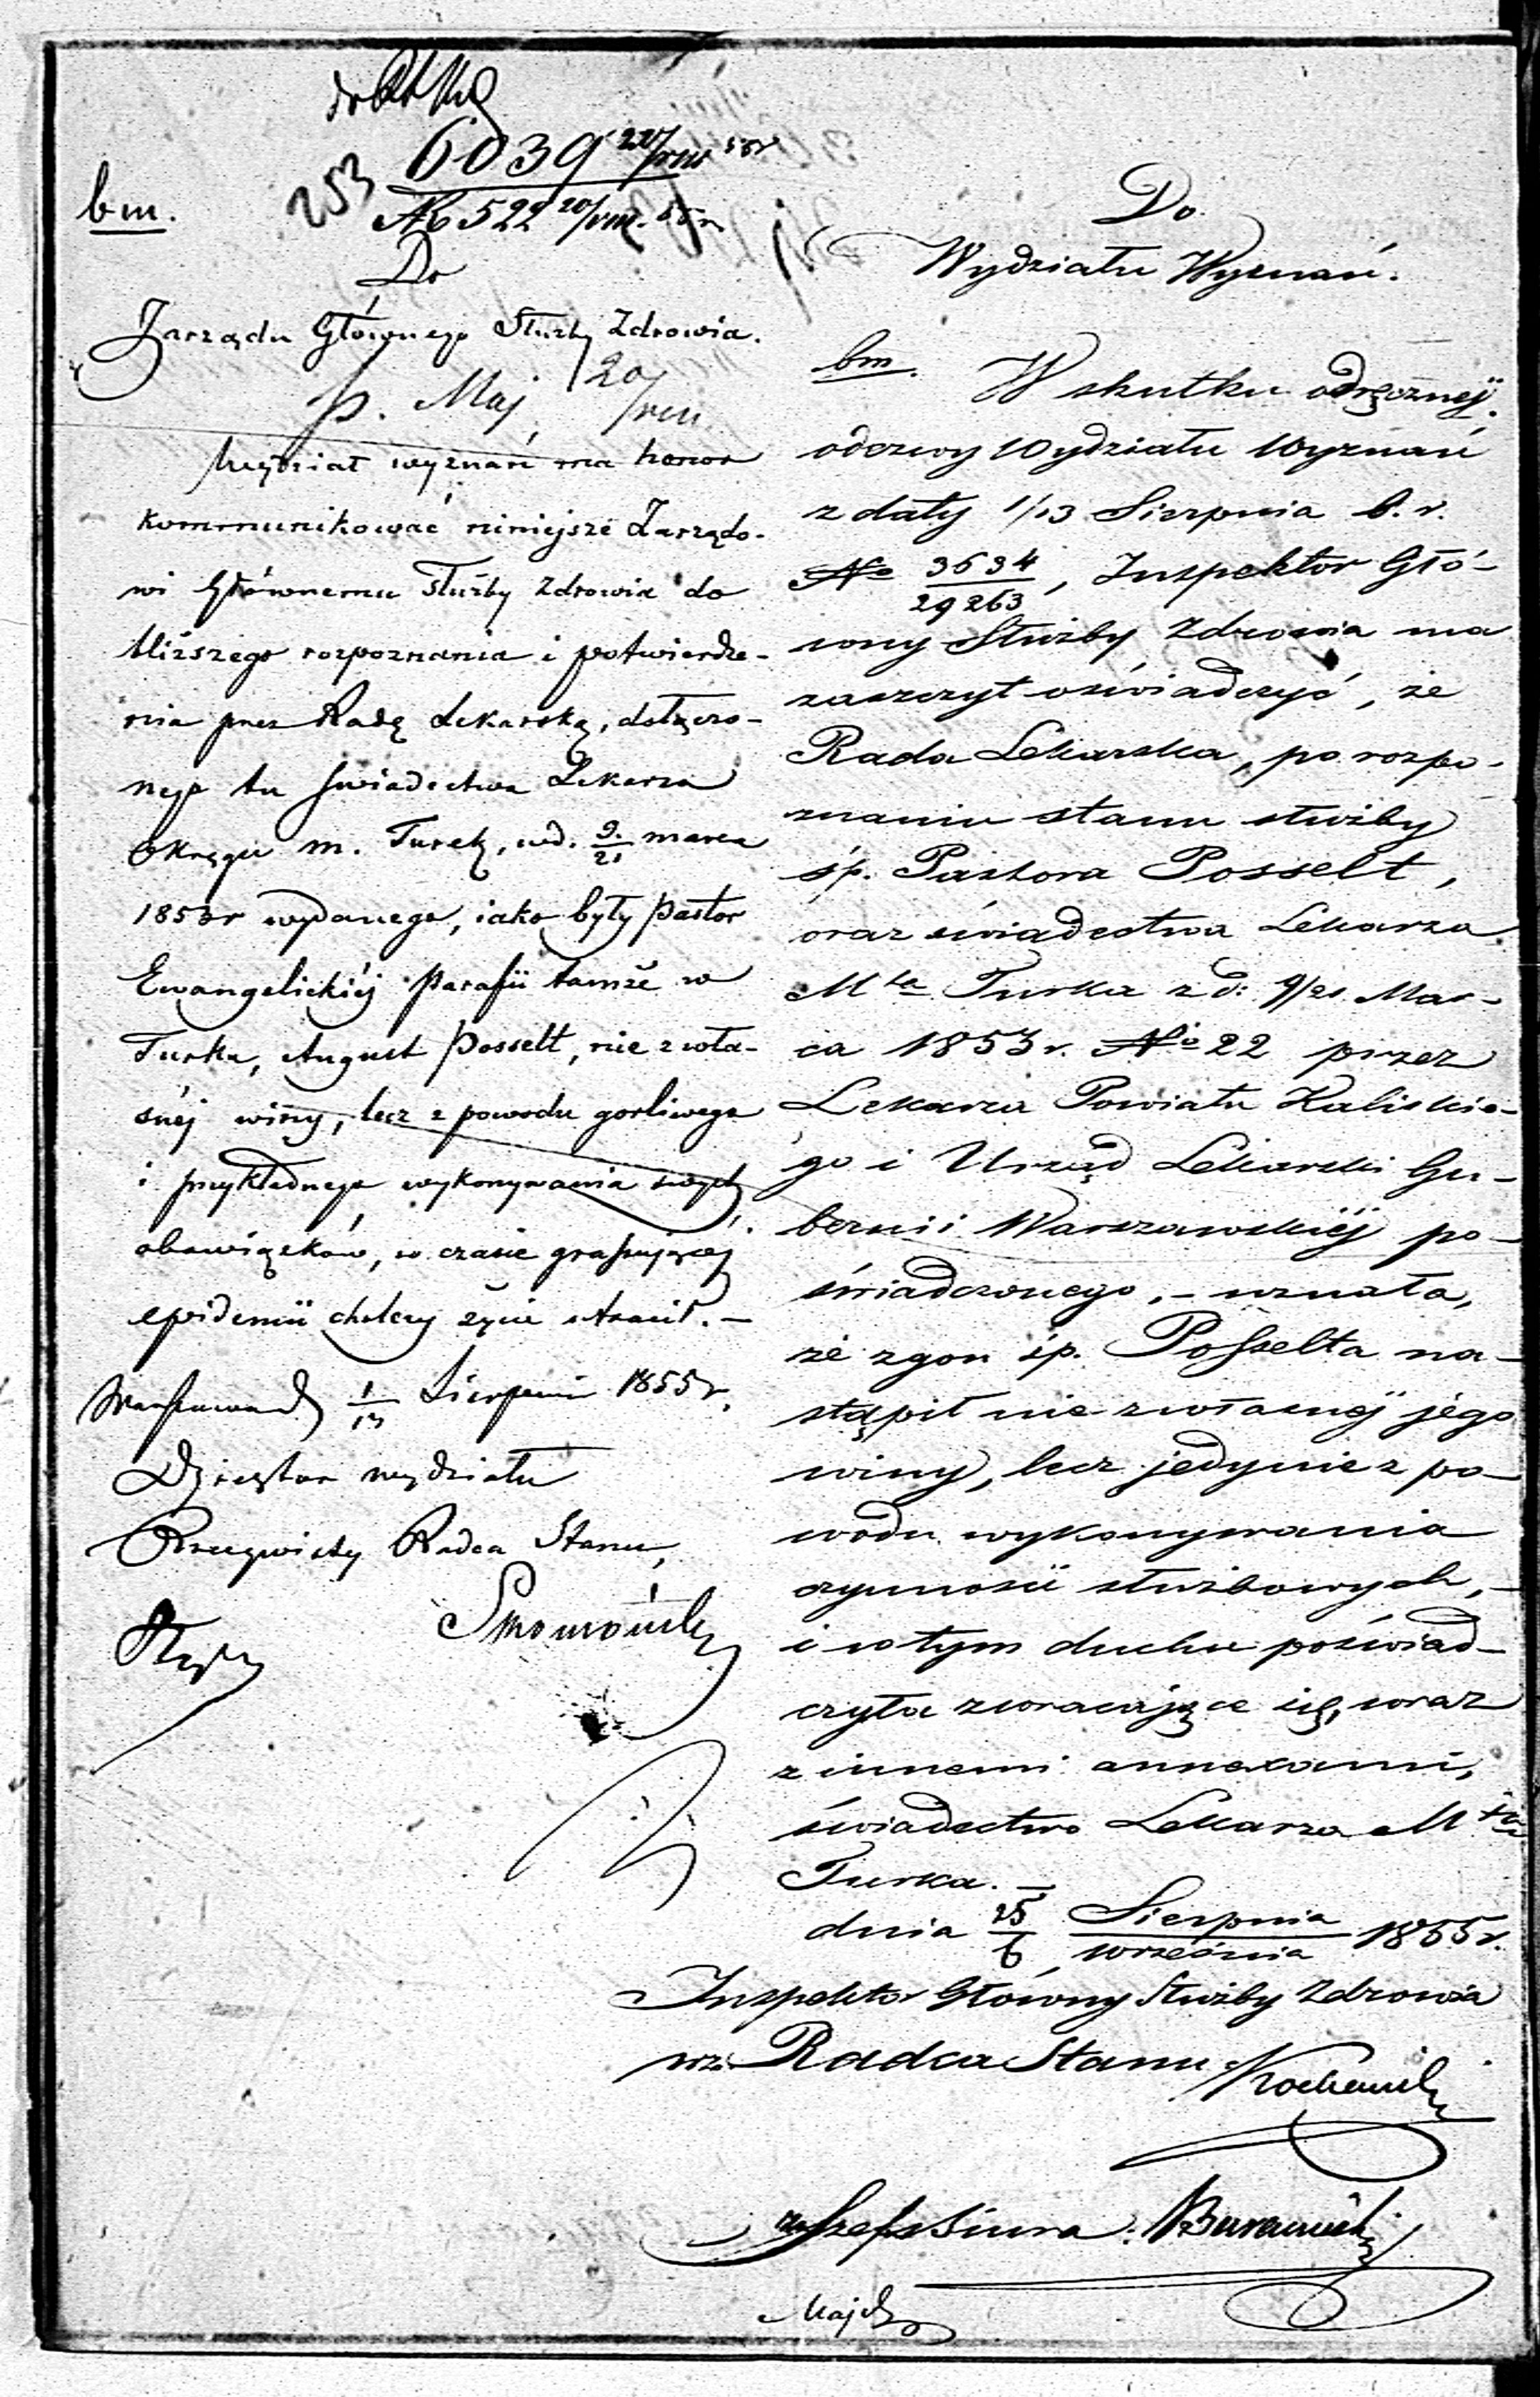 6039 20/VIII 55r
253
№ 522 20/VIII. 55r
bm.
Do
Zarządu Głównego Służby Zdrowia.
p. Maj 20/VIII
Wydział wyznań ma honor
kommunikować niniejsze Zarządo-
wi Głównemu Służby Zdrowia do
bliższego rozpoznania i potwierdze-
nia przez Radę Lekarską, dołączo-
nego tu świadectwa Lekarza
Okręgu m. Turek, w d. 9/21 marca
1853r wydanego, iako były Pastor
Ewangelickiéj Parafii tamże w
Turku, August Posselt, nie z wła-
snéj winy, lecz z powodu gorliwego
i przykładnego wykonywania swych
obowiązków, w czasie grassującej
epidemii cholery życie utracił. –
Warszawa d 1/13 Sierpnia 1855r.
Dyrektor wydziału
Rzeczywisty Radca Stanu,
Do
Wydziału Wyznań.
bm. W skutku odręcznéj
odezwy Wydziału Wyznań
z daty 1/13 Sierpnia b. r.
№ 3634/29263, Inspektor Głó-
wny Służby Zdrowia ma
zaszczyt oświadczyć, że
Rada Lekarska, po rozpo-
znaniu stanu służby
śp. Pastora Posselt,
oraz świadectwa Lekarza
Mta Turka z d: 9/21 Mar-
ca 1853r. № 22 przez
Lekarza Powiatu Kaliskie-
go i Urząd Lekarski Gu-
bernii Warszawskiéj po-
świadczonego, – uznała,
że zgon śp. Posselta na-
stąpił nie z własnéj jego
winy, lecz jedynie z po-
wodu wykonywania
czynności służbowych, –
i w tym duchu poświad-
czyła zwracające się, wraz
z innemi annexami,
świadectwo Lekarza Mta
Turka. –
dnia 25/6 Sierpnia/września 1855r.
Inspektor Główny Służby Zdrowia
wz. Radca Stanu
za Szefa Biura